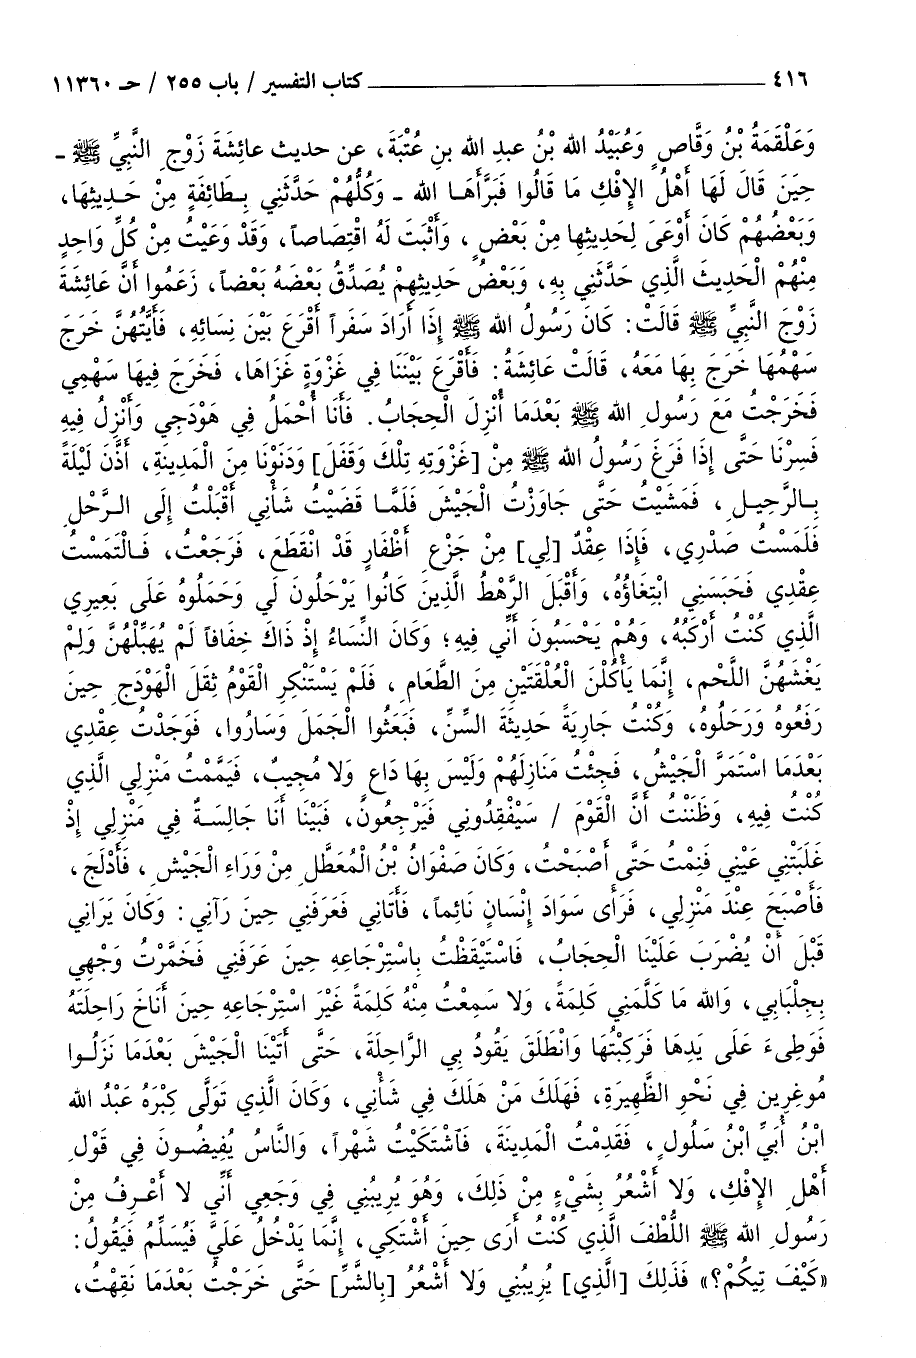 ٤١٦ كتاب التفسير / باب ٢٥٥ / حـ ١١٣٦٠
وَعَلْقَمَةُ بْنُ وَقَّاصٍ وَعُبَيْدُ الله بْنُ عبدِ الله بنِ عُتْبَةَ، عن حديث عائِشَةَ زَوْجِ النَّبِيِّ ﷺ -
حِينَ قَالَ لَهَا أَهْلُ الإفْكِ مَا قَالُوا فَبَرَّأَهَا الله - وَكُلُّهُمْ حَدَّثَنِي بِطَائِفَةٍ مِنْ حَدِيثِهَا،
وَبَعْضُهُمْ كَانَ أَوْعَىَ لِحَدِيثِها مِنْ بَعْضٍ، وَأَثْبَتَ لَهُ اقْتِصَاصاً، وَقَدْ وَعَيْتُ مِنْ كُلِّ وَاحِدٍ
مِنْهُمْ الْحَدِيثَ الَّذِي حَدَّثَنِي بِهِ، وَبَعْضُ حَدِيثِهِمْ يُصَدِّقُ بَعْضَهُ بَعْضاً، زَعَمُوا أَنَّ عَائِشَةَ
زَوْجَ النَّبِيِّ ﷺ قَالَتْ: كَانَ رَسُولُ الله ﷺ إِذَا أَرَادَ سَفَراً أَقْرَعَ بَيْنَ نِسَائِهِ، فَأَيَّتُهُنَّ خَرَجَ
سَهْمُهَا خَرَجَ بِهَا مَعَهُ، قَالَتْ عَائِشَةُ: فَأَقْرَعَ بَيْنَنَا فِي غَزْوَةٍ غَزَاهَا، فَخَرَجَ فِيهَا سَهْمِي
فَخَرَجْتُ مَعَ رَسُولِ الله ﷺ بَعْدَمَا أُنْزِلَ الْحِجَابُ. فَأَنَا أُحْمَلُ فِي هَوْدَجِي وَأُنْزِلُ فِيهِ
فَسِرْنَا حَتَّى إِذَا فَرَغَ رَسُولُ الله ﷺ مِنْ [غَزْوَتِهِ تِلْكَ وَقَفَلَ] وَدَنَوْنَا مِنَ الْمَدِينَةِ، أَذَّنَ لَيْلَةً
بِالرَّحِيلِ، فَمَشَيْتُ حَتَّى جَاوَزْتُ الْجَيْشَ فَلَمَّا قَضَيْتُ شَأْنِي أَقْبَلْتُ إِلَى الرَّحْلِ
فَلَمَسْتُ صَدْرِي، فَإِذَا عِقْدٌ [لِي] مِنْ جَزْعِ أَظْفَارٍ قَدْ انْقَطَعَ، فَرَجَعْتُ، فَالْتَمَسْتُ
عِقْدِي فَحَبَسَنِي ابْتِغَاؤُهُ، وَأَقْبَلَ الرَّهْطُ الَّذِينَ كَانُوا يَرْحَلُونَ لِي وَحَمَلُوهُ عَلَى بَعِيرِي
الَّذِي كُنْتُ أَرْكَبُهُ، وَهُمْ يَحْسَبُونَ أَنِّي فِيهِ؛ وَكَانَ النِّسَاءُ إِذْ ذَاكَ خِفَافاً لَمْ يُهَبِّلْهُنَّ وَلَمْ
يَغْشَهُنَّ اللَّحْم، إِنَّمَا يَأْكُلْنَ الْعُلْقَتَيْنِ مِنَ الطَّعَامِ، فَلَمْ يَسْتَنْكِرِ الْقَوْمُ ثِقَلَ الْهَوْدَجِ حِينَ
رَفَعُوهُ وَرَحَلُوهُ، وَكُنْتُ جَارِيَةً حَدِيثَةَ السِّنِّ، فَبَعَثُوا الْجَمَلَ وَسَارُوا، فَوَجَدْتُ عِقْدِي
بَعْدَمَا اسْتَمَرَّ الْجَيْشُ، فَجِئْتُ مَنَازِلَهُمْ وَلَيْسَ بِهَا دَاعٍ وَلَا مُجِيبٌ، فَيَمَّمْتُ مَنْزِلِي الَّذِي
كُنْتُ فِيهِ، وَظَنَنْتُ أَنَّ الْقَوْمَ / سَيَفْقِدُونِي فَيَرْجِعُونَ، فَبَيْنَا أَنَا جَالِسَةٌ فِي مَنْزِلِي إِذْ
غَلَبَتْنِي عَيْنِي فَنِمْتُ حَتَّى أَصْبَحْتُ، وَكَانَ صَفْوَانُ بْنُ الْمُعَطَّلِ مِنْ وَرَاءِ الْجَيْشِ، فَأَدْلَجَ،
فَأَصْبَحَ عِنْدَ مَنْزِلِي، فَرَأَى سَوَادَ إِنْسَانٍ نَائِماً، فَأَتَانِي فَعَرَفَنِي حِينَ رَآنِي: وَكَانَ يَرَانِي
قَبْلَ أَنْ يُضْرَبَ عَلَيْنَا الْحِجَابُ، فَاسْتَيْقَظْتُ بِاسْتِرْجَاعِهِ حِينَ عَرَفَنِي فَخَمَّرْتُ وَجْهِي
بِجِلْبَابِي، وَالله مَا كَلَّمَنِي كَلِمَةً، وَلَا سَمِعْتُ مِنْهُ كَلِمَةً غَيْرَ اسْتِرْجَاعِهِ حِينَ أَنَاخَ رَاحِلَتَهُ
فَوَطِىءَ عَلَى يَدِهَا فَرَكِبْتُهَا وَانْطَلَقَ يَقُودُ بِي الرَّاحِلَةَ، حَتَّى أَتَيْنَا الْجَيْشَ بَعْدَمَا نَزَلُوا
مُوغِرِينَ فِي نَحْوِ الظَّهِيرَةِ، فَهَلَكَ مَنْ هَلَكَ فِي شَأْنِي، وَكَانَ الَّذِي تَوَلَّى كِبْرَهُ عَبْدُ الله
ابْنُ أُبَيِّ ابْنُ سَلُولٍ، فَقَدِمْتُ الْمَدِينَةَ، فَاشْتَكَيْتُ شَهْراً، وَالنَّاسُ يُفِيضُونَ فِي قَوْلِ
أَهْلِ الإِفْكِ، وَلَا أَشْعُرُ بِشَيْءٍ مِنْ ذَلِكَ، وَهُوَ يُرِيبُنِي فِي وَجَعِي أَنِّي لا أَعْرِفُ مِنْ
رَسُولِ الله ﷺ اللُّطْفَ الَّذِي كُنْتُ أَرَى حِينَ أَشْتَكِي، إِنَّمَا يَدْخُلُ عَلَيَّ فَيُسَلِّمُ فَيَقُولُ:
«كَيْفَ تِيكُمْ؟» فَذَلِكَ [الَّذِي] يُرِيبُنِي وَلَا أَشْعُرُ [بِالشَّرِّ] حَتَّى خَرَجْتُ بَعْدَمَا نَقِهْتُ،